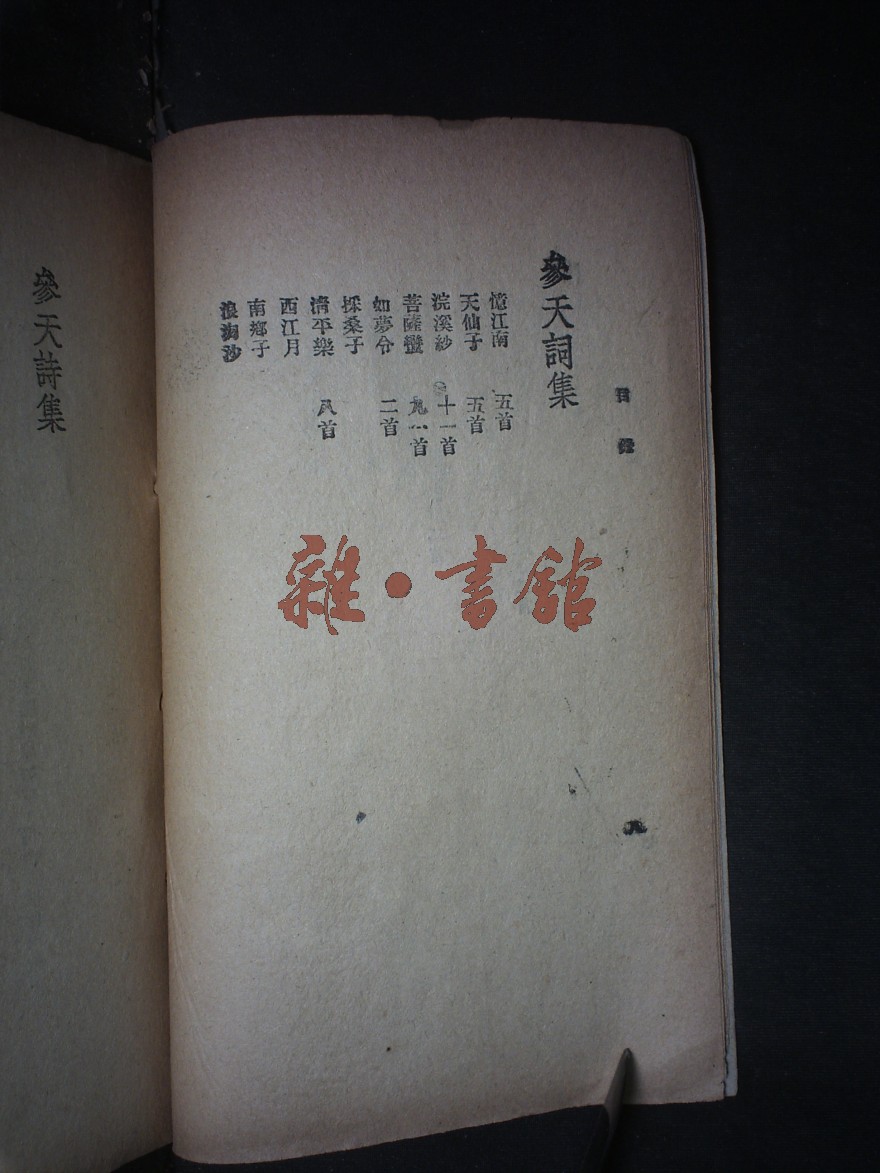 目錄
參天詞集
憶江南 五首
天仙子 五首
浣溪紗 十一首
菩薩蠻 九一首
如夢令 二首
採桑子
清平樂 八首
西江月
南鄉子
浪淘沙
八
參天詩集
雜·書館